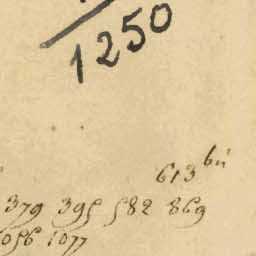 1250
613 bú
379 395 582 869
1056 1077